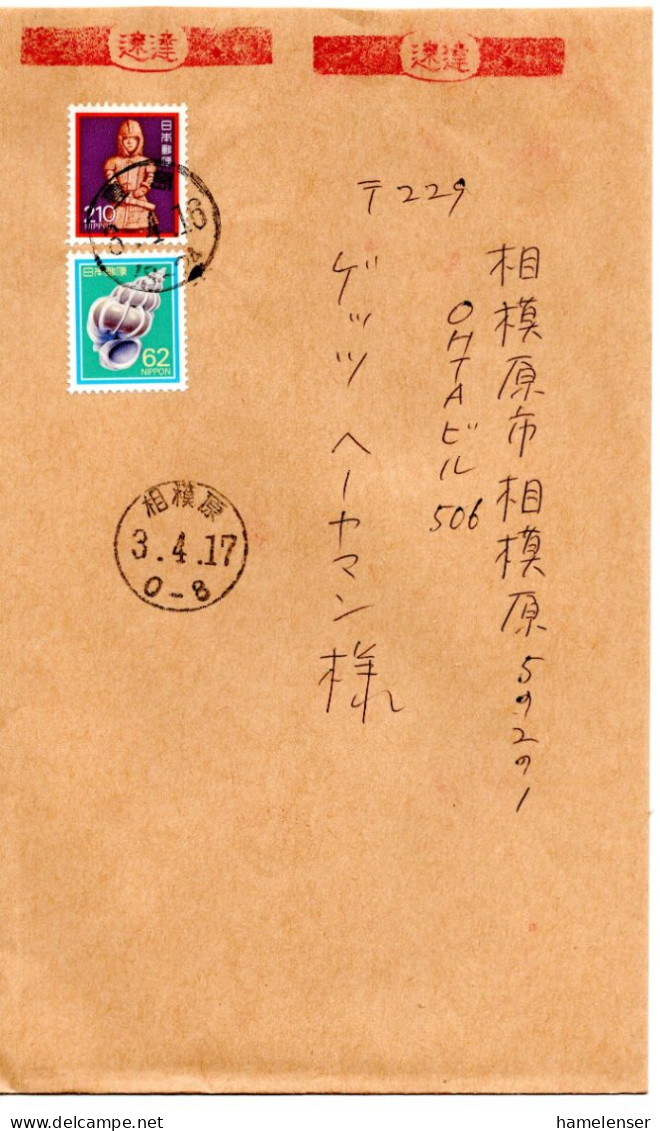 速達
速達
日本郵便
210
NIPPON
島
3.4.16
18-24
日本郵便
62
NIPPON
〒229
相模原市相模原5の2の1
OHTAビル506
ゲッツ ヘーヤマン様
相模原
3.4.17
0-8
hamelenser